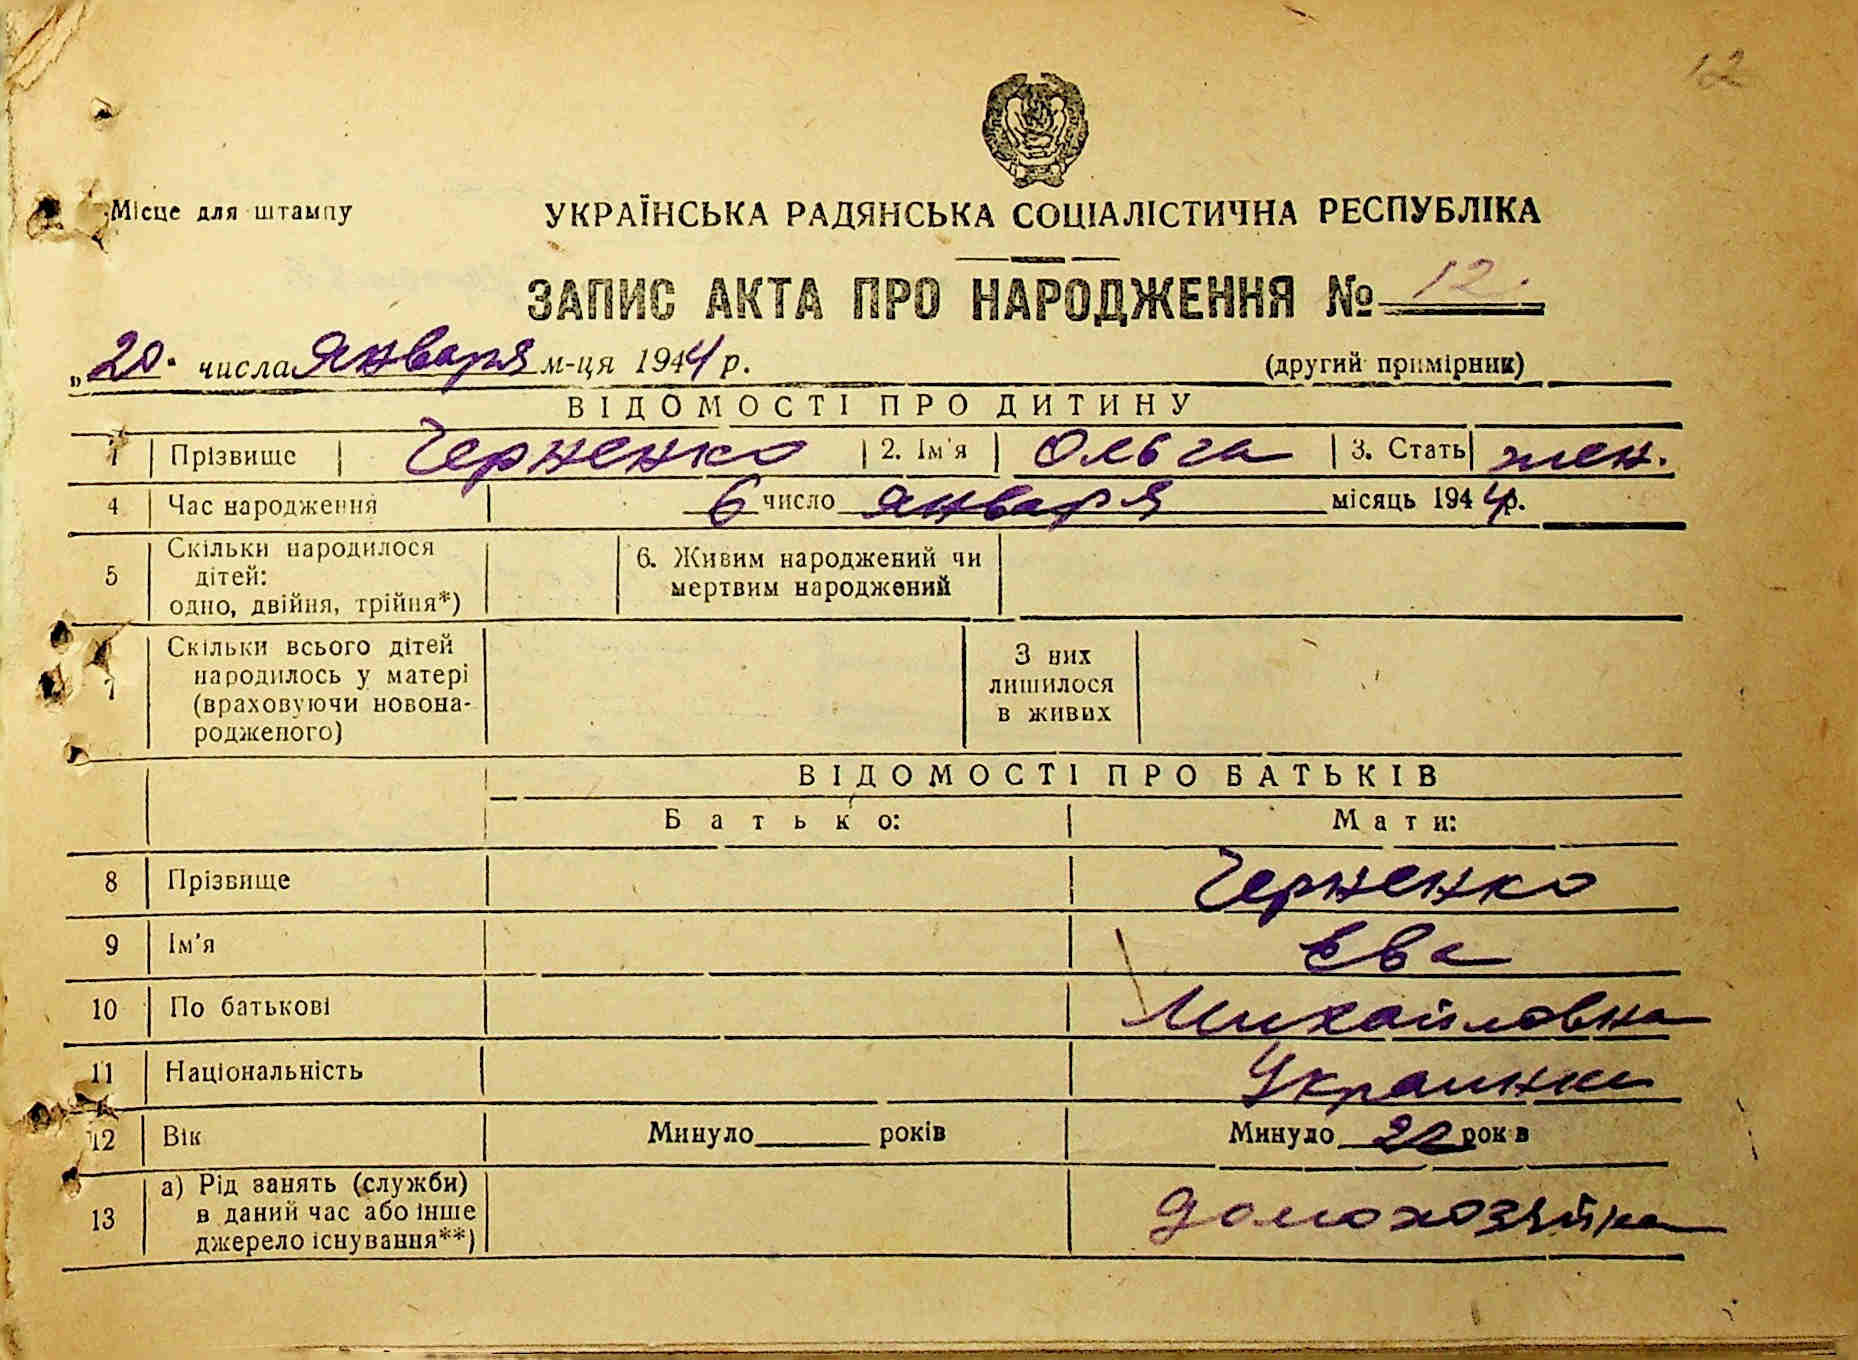 12
Місце для штампу
УКРАЇНСЬКА РАДЯНСЬКА СОЦІАЛІСТИЧНА РЕСПУБЛІКА
ЗАПИС АКТА ПРО НАРОДЖЕННЯ № 12.
„20" числа января м-ця 1944 р. (другий примірник)
ВІДОМОСТІ ПРО ДИТИНУ
1 Прізвище Черненко 2. Ім'я Ольга 3. Стать жен.
4 Час народження 6 число января місяць 1944 р.
5 Скільки народилося
дітей:
одно, двійня, трійня*)
6. Живим народжений чи
мертвим народжений
7 Скільки всього дітей
народилось у матері
(враховуючи новона-
родженого)
З них
лишилося
в живих
ВІДОМОСТІ ПРО БАТЬКІВ
Батько: Мати:
8 Прізвище Черненко
9 Ім'я Ева
10 По батькові Михайловна
11 Національність Украинка
12 Вік Минуло років Минуло років
13 а) Рід занять (служби)
в даний час або інше
джерело існування**)
домохозяйка